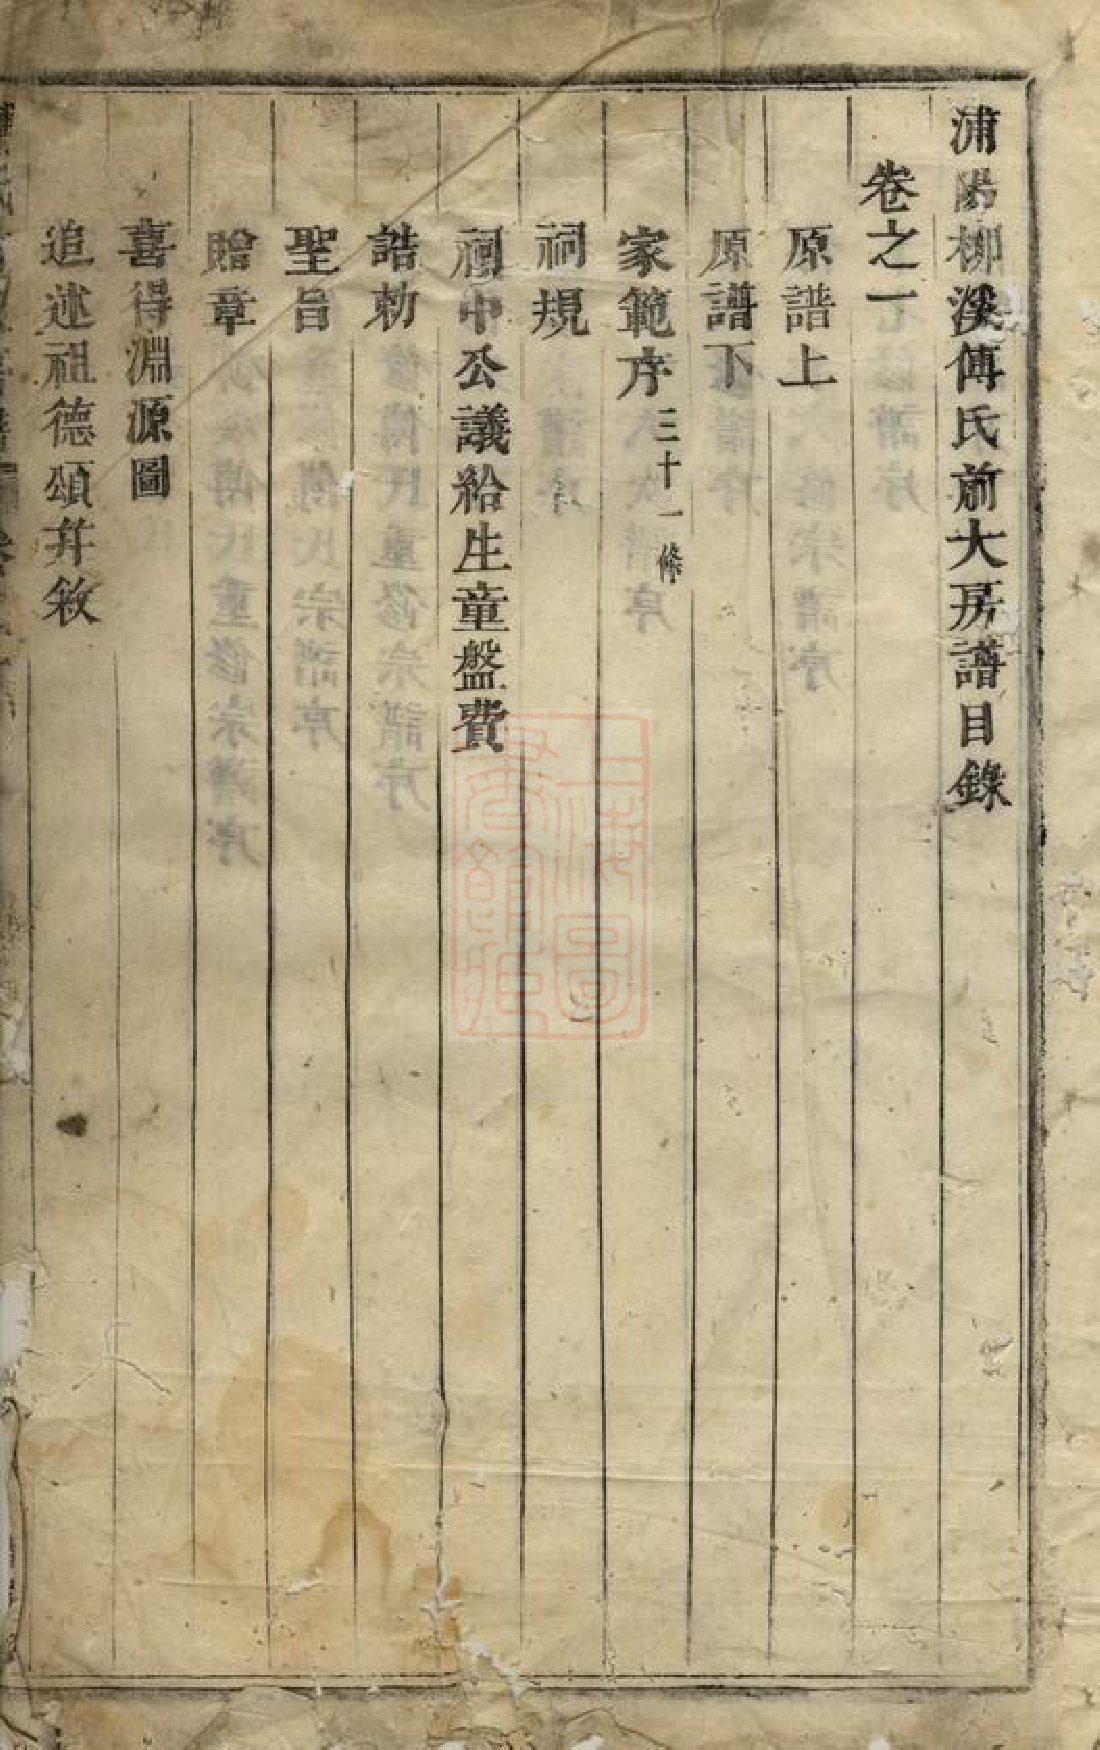 浦陽柳溪傅氏前大房譜目錄
卷之一
原譜上
原譜下
家範序三十一條
祠規
祠中公議給生童盤費
誥勅
聖旨
贈章
喜得淵源圖
追述祖德頌并敘
上海圖書館藏